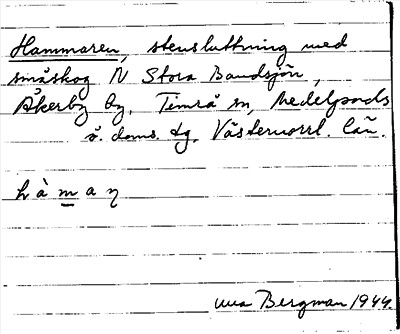 Hammaren, stensluttning med
småskog N Stora Bandsjön,
Åkerby by, Timrå sn, Medelpads
ö. doms. tg. Västernorrl. län.
h à m a ŋ
Bergman 1944.